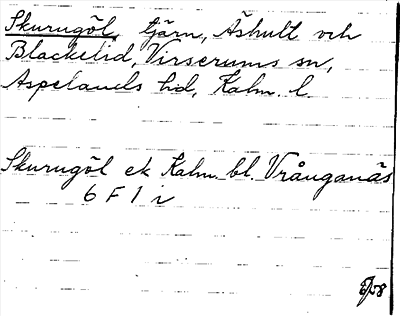 Skurugöl, tjärn, Åshult och
Blackelid, Virserums sn,
Aspelands hd, Kalm. l.
Skurugöl ek Kalm. bl. Vrånganäs
6 F 1 i